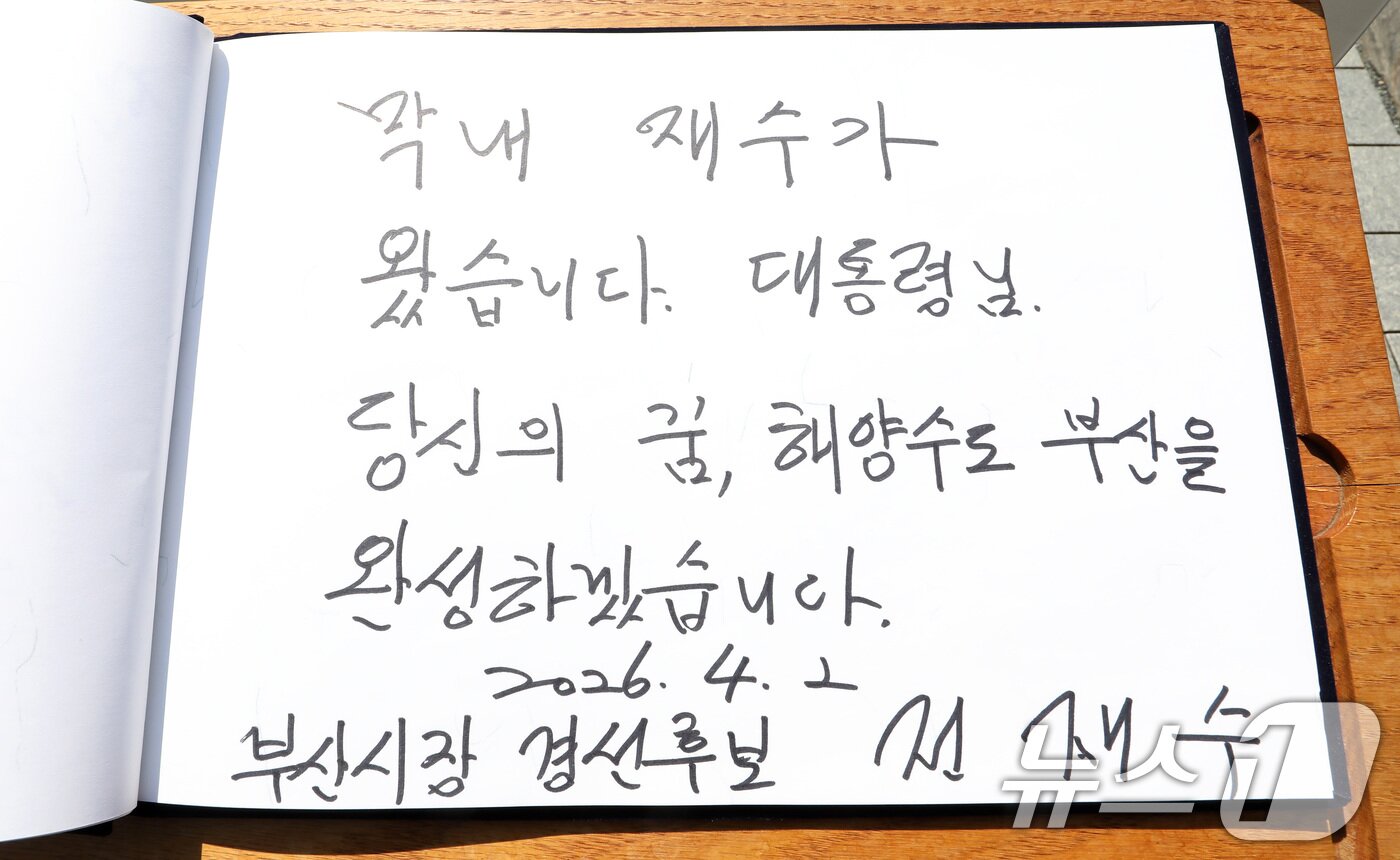 막내 재수가
왔습니다. 대통령님.
당신의 꿈, 해양수도 부산을
완성하겠습니다.
2026. 4. 2
부산시장 경선후보 전재수
뉴스1